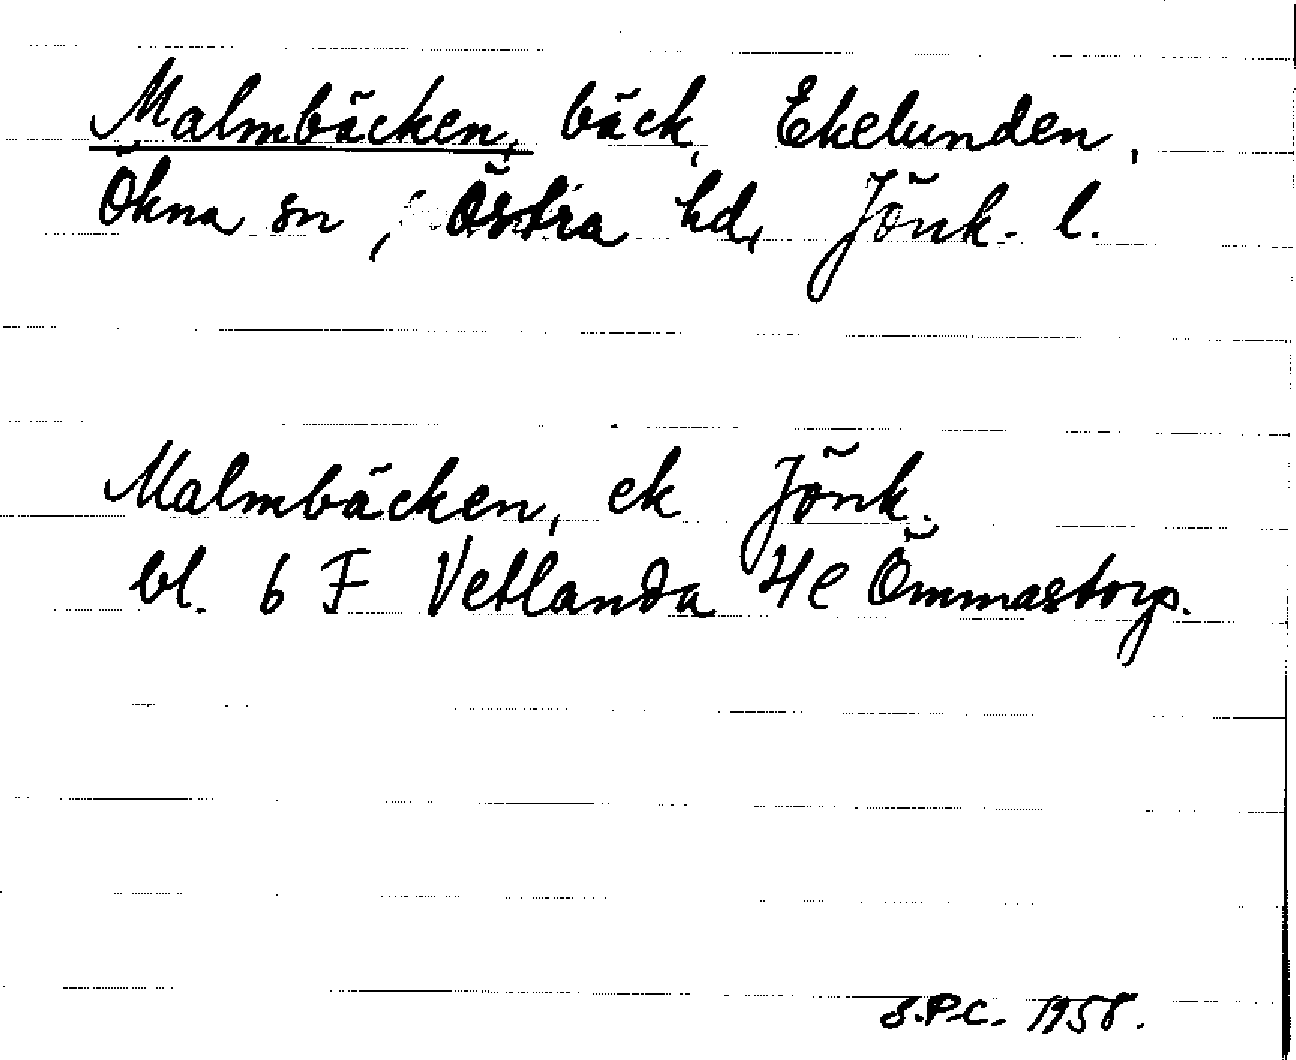 Malmbäcken, bäck, Ekelunden,
Ökna sn, Östra hd, Jönk. l.
Malmbäcken, ek Jönk.
bl. 6 F Vetlanda 4e Ömmastorp.
S.P.C. 1958.